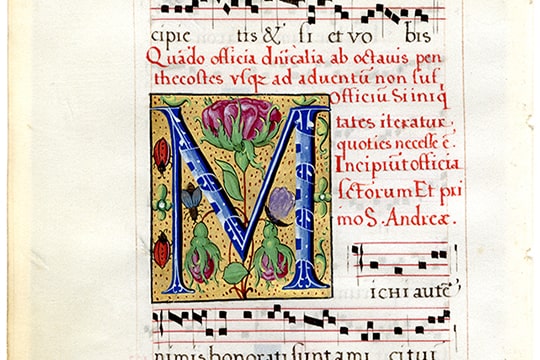 cipie tis & si et vo bis
Quãdo officia dñicalia ab octauis pen
thecostes vsqz ad aduentũ non suf,
Officiũ Si iniq
tates iteratur,
quoties necesse ẽ.
Incipiũt officia
sctorum Et pri
mo S. Andreæ.
M
ICHI autẽ
nimis honorati sunt ami citui